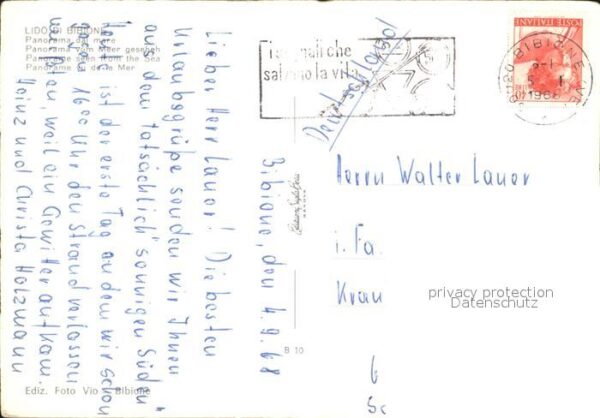 LIDO DI BIBIONE
Panorama dal mare
Panorama vom Meer gesehen
Panorame seen from the Sea
Panorame vu de la Mer
Bibione, den 4.9.68
Lieber Herr Lauer! Die besten
Urlaubsgrüße senden wir Ihnen
aus dem "tatsächlich" sonnigen Süden.
Heute ist der erste Tag an dem wir schon
gegen 16 00 Uhr den Strand verlassen
mußten, weil ein Gewitter aufkam.
Heinz und Christa Holzmann
Ediz. Foto Vio - Bibione
B 10
i segnali che
salvano la vita
Deutschland
POSTE ITALIANE
BIBIONE
1968
Herrn Walter Lauer
i. Fa.
Krau
privacy protection
Datenschutz